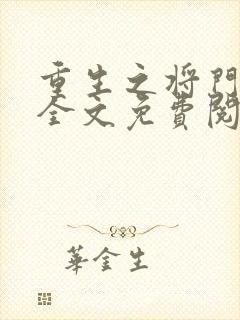 重生之将門
全文免費閱
華金生